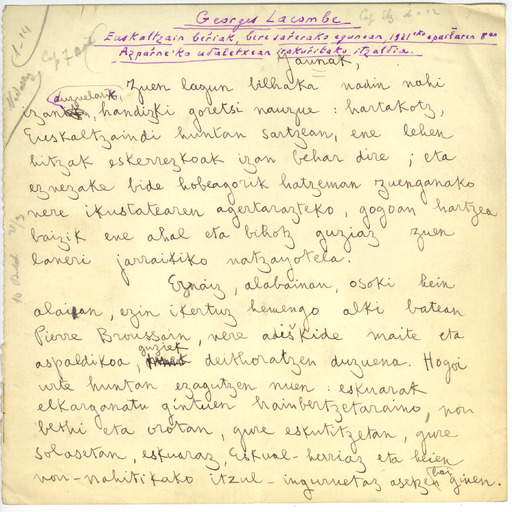 Georges Lacombe
Euskaltzain beŕiak, bere sarerako egunean, 1921'ko epailaren 8an
Azparne'ko udaletxean irakuŕitako itzaldia.
Jaunak,
Zuen lagun bilhaka nadin nahi
duzuelarik,
izan, handizki goretsi nauzue : hartakotz,
Euskaltzaindi huntan sartzean, ene lehen
hitzak eskerrezkoak izan behar dire ; eta
eznezake bide hobeagorik hatzeman zuenganako
nere ikustatearen agertarazteko, gogoan hartzea
baizik ene ahal eta bihotz guziaz zuen
laneri jarraikiko natzayotela.
Eznaiz, alabainan, osoki hein
alaian, ezin ikertuz hemengo alki batean
Pierre Broussain, nere adiškide maite eta
guziek
aspaldikoa, deithoratzen duzuena. Hogoi
urte huntan ezagutzen nuen : eskuarak
elkarganatu gintuen hainbertzetaraino, non
bethi eta orotan, gure eskutitzetan, gure
solasetan, eskuaraz, Eskual-herriaz eta heien
non-nahitikako itzul-inguruetaz asetzen bai ginen.